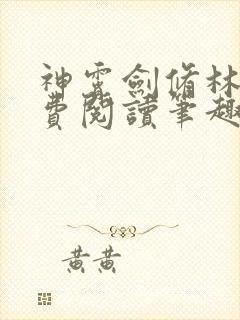 神霄劍脩林
費閱讀筆趣
黃黃